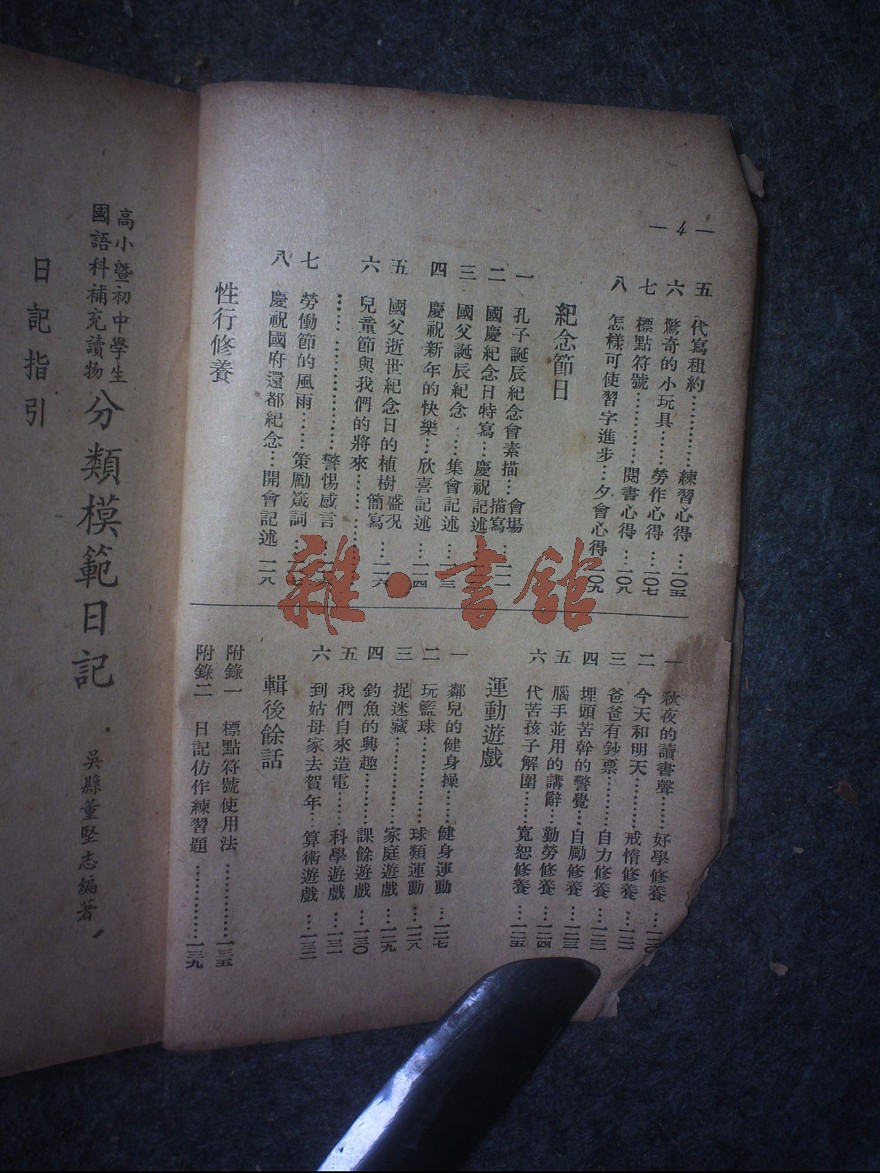 — 4 —
五 代寫租約……………練習心得…一〇五
六 驚奇的小玩具………勞作心得…一〇七
七 標點符號……………閱書心得…一〇八
八 怎樣可使習字進步…夕會心得一〇九
紀念節日
一 孔子誕辰紀念會素描…會場描寫…一一
二 國慶紀念日特寫…慶祝記述
三 國父誕辰紀念……集會記述…
四 慶祝新年的快樂…欣喜記述…一一四
五 國父逝世紀念日的植樹盛況簡寫…一一六
六 兒童節與我們的將來…………警惕感言
七 勞働節的風雨……策勵箴詞
八 慶祝國府還都紀念…開會記述 一一八
性行修養
一 秋夜的讀書聲……好學修養…一二〇
二 今天和明天………戒惰修養…一二一
三 爸爸有鈔票………自力修養…一二二
四 埋頭苦幹的警覺…自勵修養…一二三
五 腦手並用的講辭…勤勞修養…一二四
六 代苦孩子解圍……寬恕修養…一二五
運動遊戲
一 鄰兒的健身操……健身運動…一二七
二 玩籃球……………球類運動…一二八
三 捉迷藏……………家庭遊戲…一二九
四 釣魚的興趣………課餘遊戲…一三〇
五 我們自來造電……科學遊戲…一三一
六 到姑母家去賀年…算術遊戲…一三二
輯後餘話
附錄一 標點符號使用法……………一三五
附錄二 日記仿作練習題……………一三九
高小暨初中學生
國語科補充讀物
分類模範日記
吳縣董堅志編著
日記指引
雜·書館